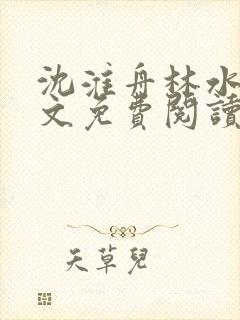 沈淮舟林水
文免費閱讀
天草兒